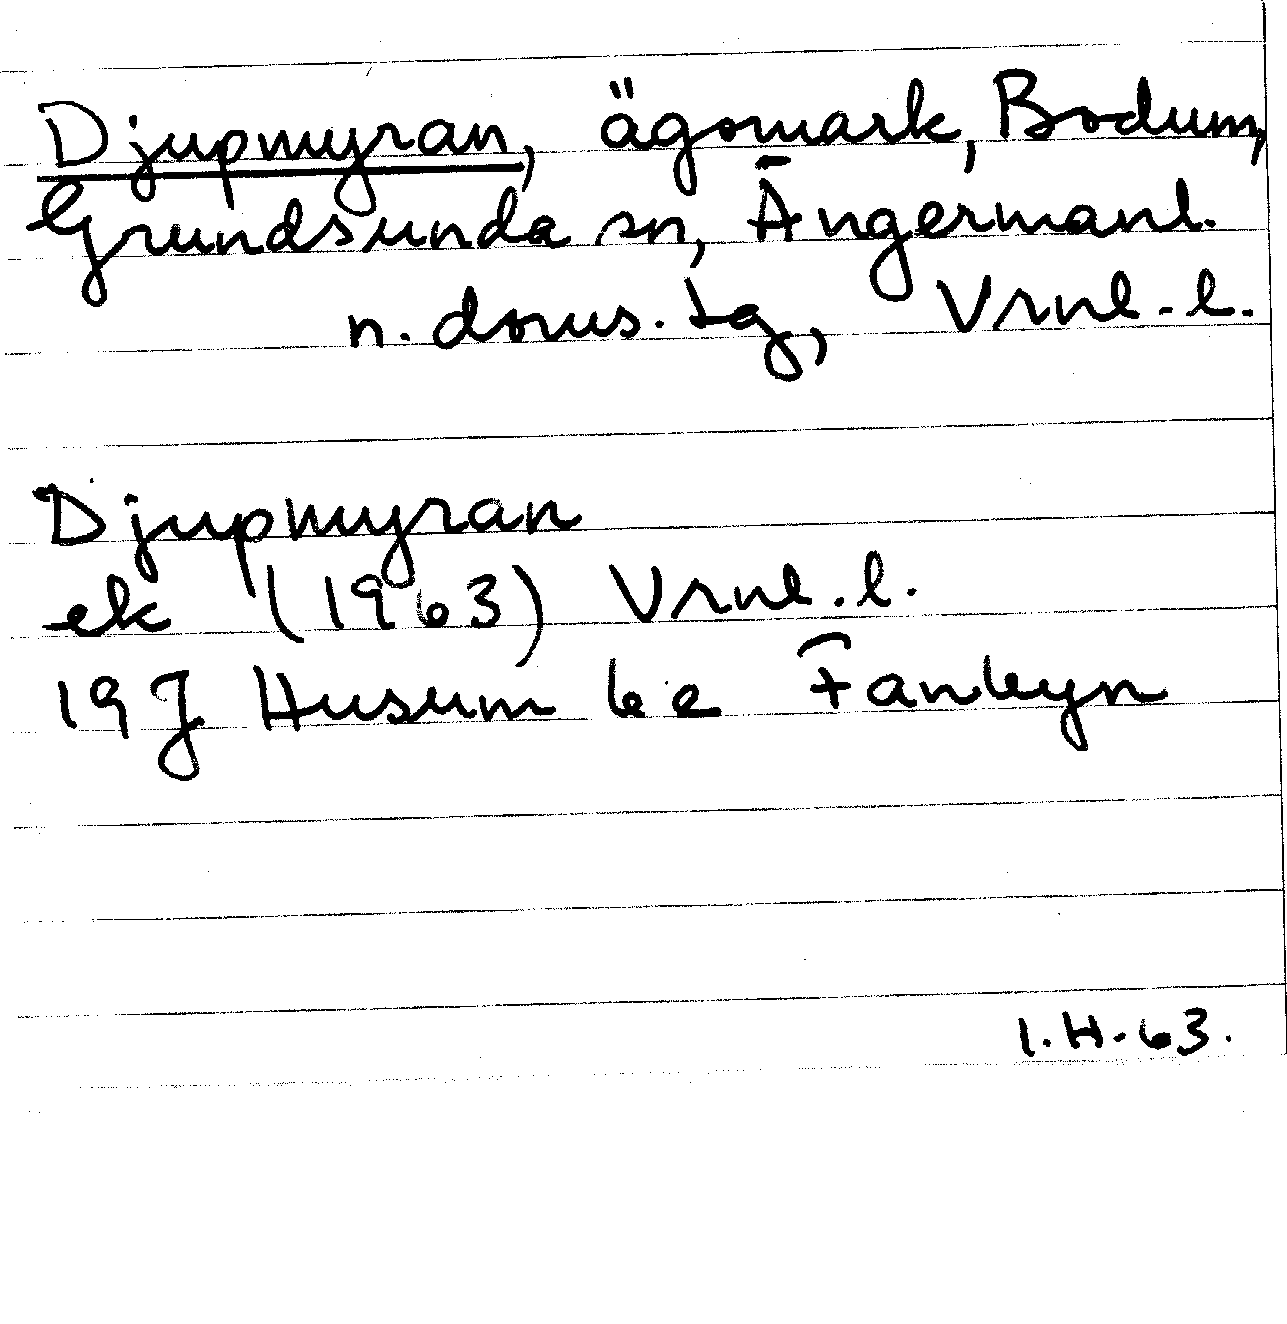 Djupmyran, ägomark, Bodum,
Grundsunda sn, Ångermanl.
n. doms. tg, Vrnl.l.
Djupmyran
ek (1963) Vrnl.l.
19J Husum 6e Fanbyn
I.H.63.